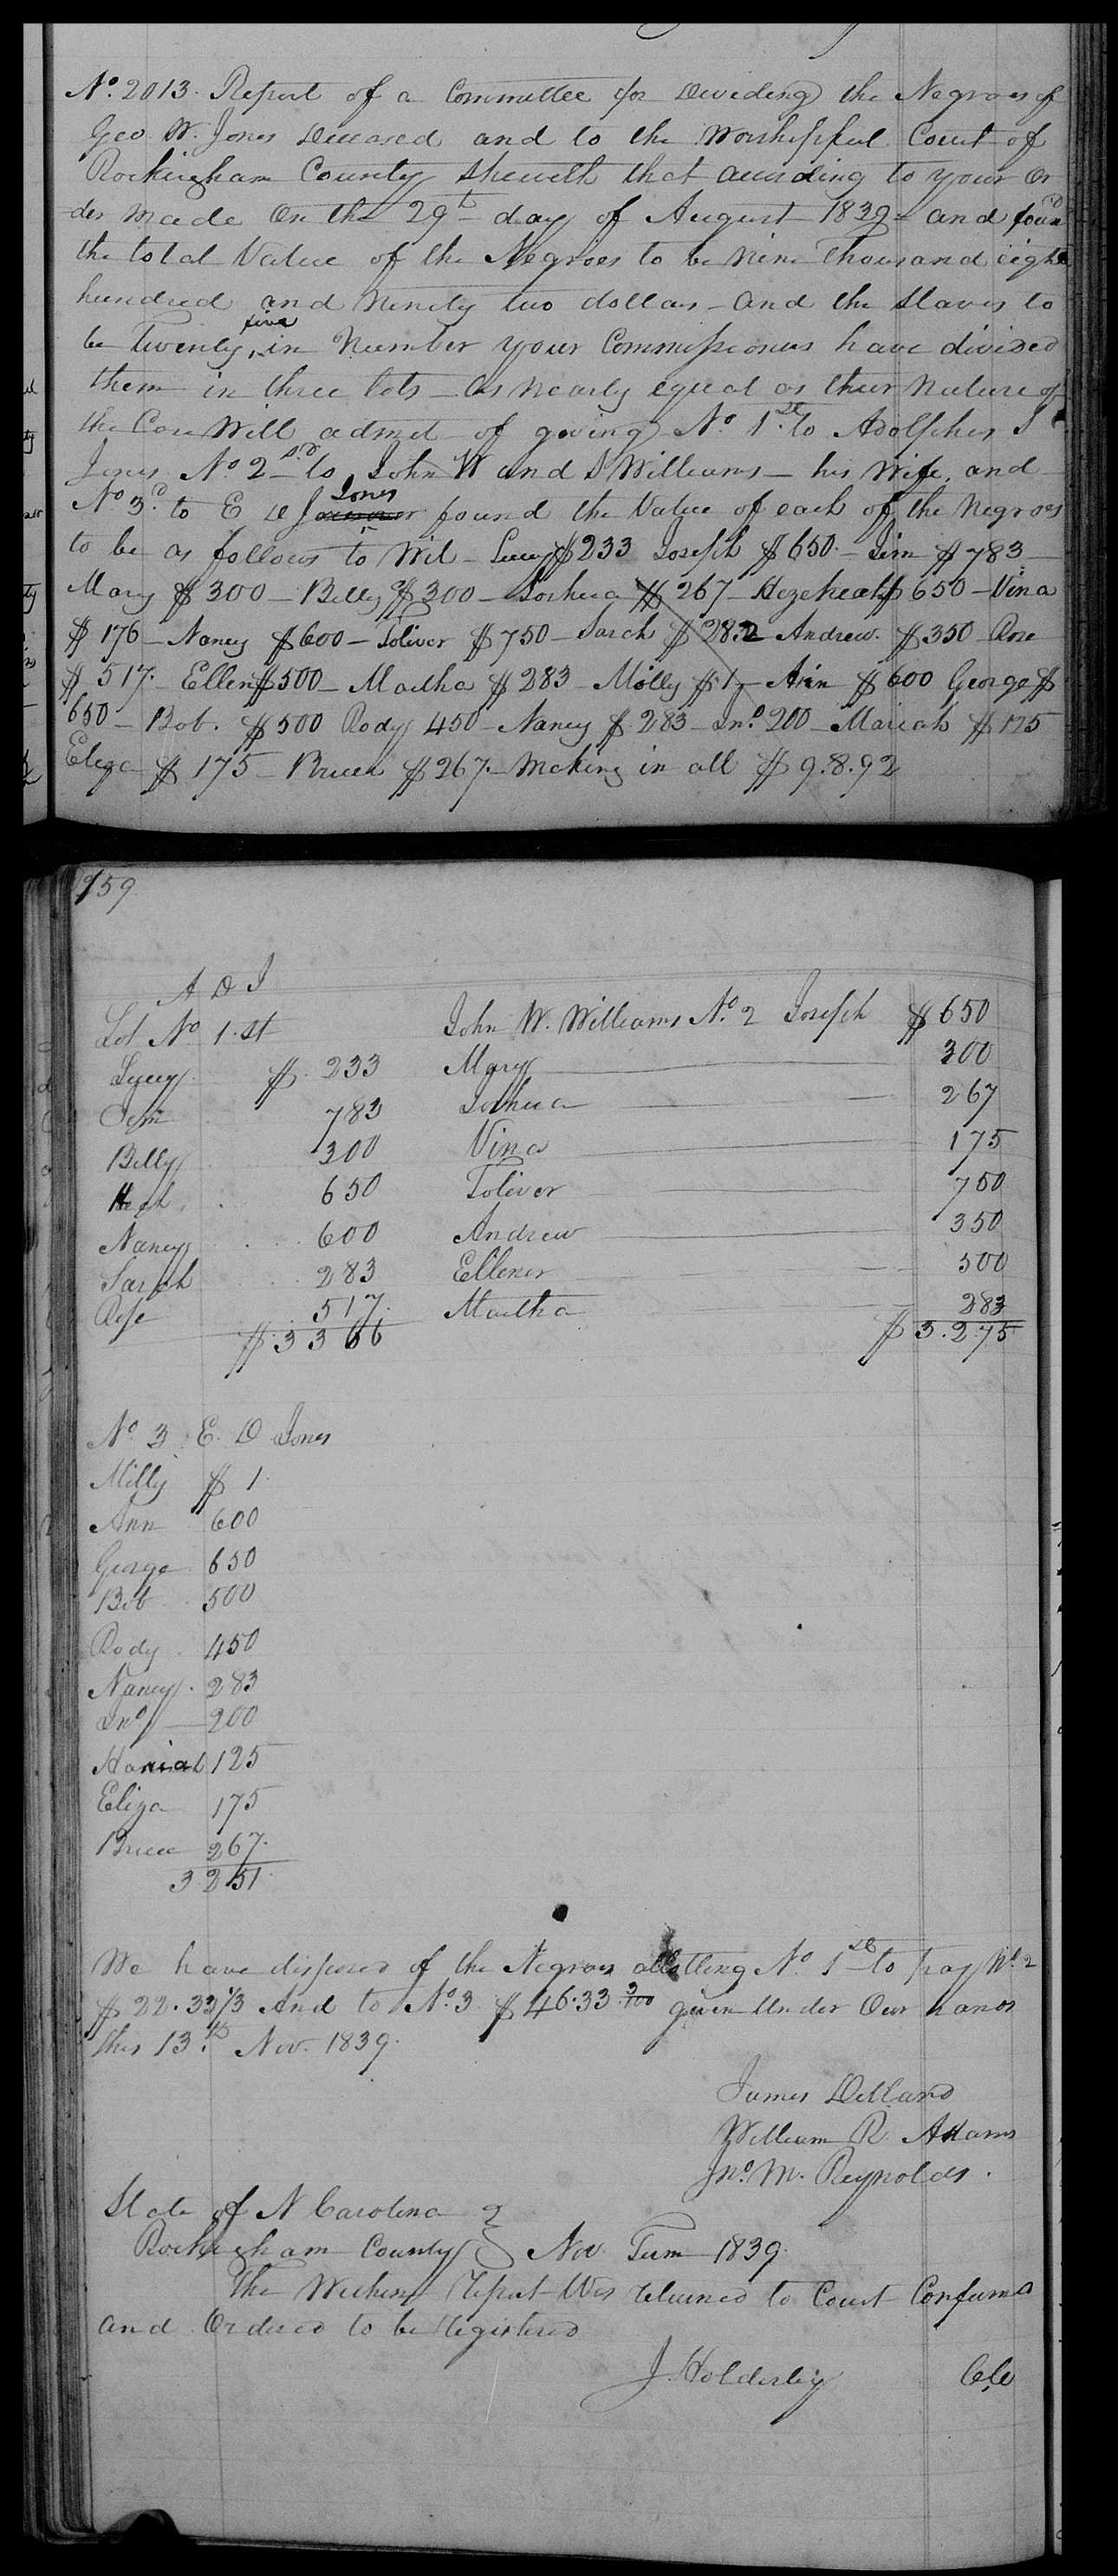 No. 2013. Report of a Committee for Deviding the Negroes of
Geo. W. Jones Deceased and to the Worshipful Court of
Rockingham County sheweth that according to your Or
der made on the 29t day of August 1839 - and found
the total Value of the Negroes to be Nine Thousand eight
hundred and Ninety two dollars - and the Slaves to
five
be Twenty, in Number your Commissioners have divided
them in three lots - as nearly equal as their Nature of
the Case Will admit of giving No. 1.st to Adolphus J
Jones No 2nd to John W and S Williams - his Wife, and
Jones
No 3.d to E D found the Value of each of the Negroes
to be as follows to Wit - Lucy $233 Joseph $650 - Jim $783 -
Mary $300 - Billy $300 - Joshua $267 - Hezekeah $650 - Vina
$176 - Nancy $600 - Toliver $750 - Sarah $282 Andrew. $350 Rose
$517. Ellen $500 - Martha $283 - Milly $1 - Ann $600 George $
650 - Bob. $500 Rody 450 - Nancy $283 - Jno. 200 - Mariah $125
Eliza $175 - Bruce $267 - Making in all $9.8.92
759
A D J
Lot No 1.st
Lucy $. 233
Jim 783
Billy 300
Hezh. 650
Nancy 600
Sarah 283
Rose 517.
$3366
John W. Williams No. 2 Joseph $650
Mary 300
Joshua 267
Vina 175
Toliver 750
Andrew 350
Ellener 500
Martha 283
$3.275
No 3 E. D Jones
Milly $1.
Ann 600
George 650
Bob 500
Rody 450
Nancy. 283
Jno 200
Mariah 125
Eliza 175
Bruce 267.
3251.
We have disposed of the Negroes allotting No. 1st to pay No. 2
$22.33 1/3 And to No. 3 $46.33 given Under Our hands
this 13.th Nov. 1839.
James Dilland
William R. Adams
Jno. M. Reynolds.
State of N Carolina
Rockingham County Nov. Term 1839.
The Within Report Was returned to Court Confirmd
and Ordered to be Registered
J. Holderby Clk